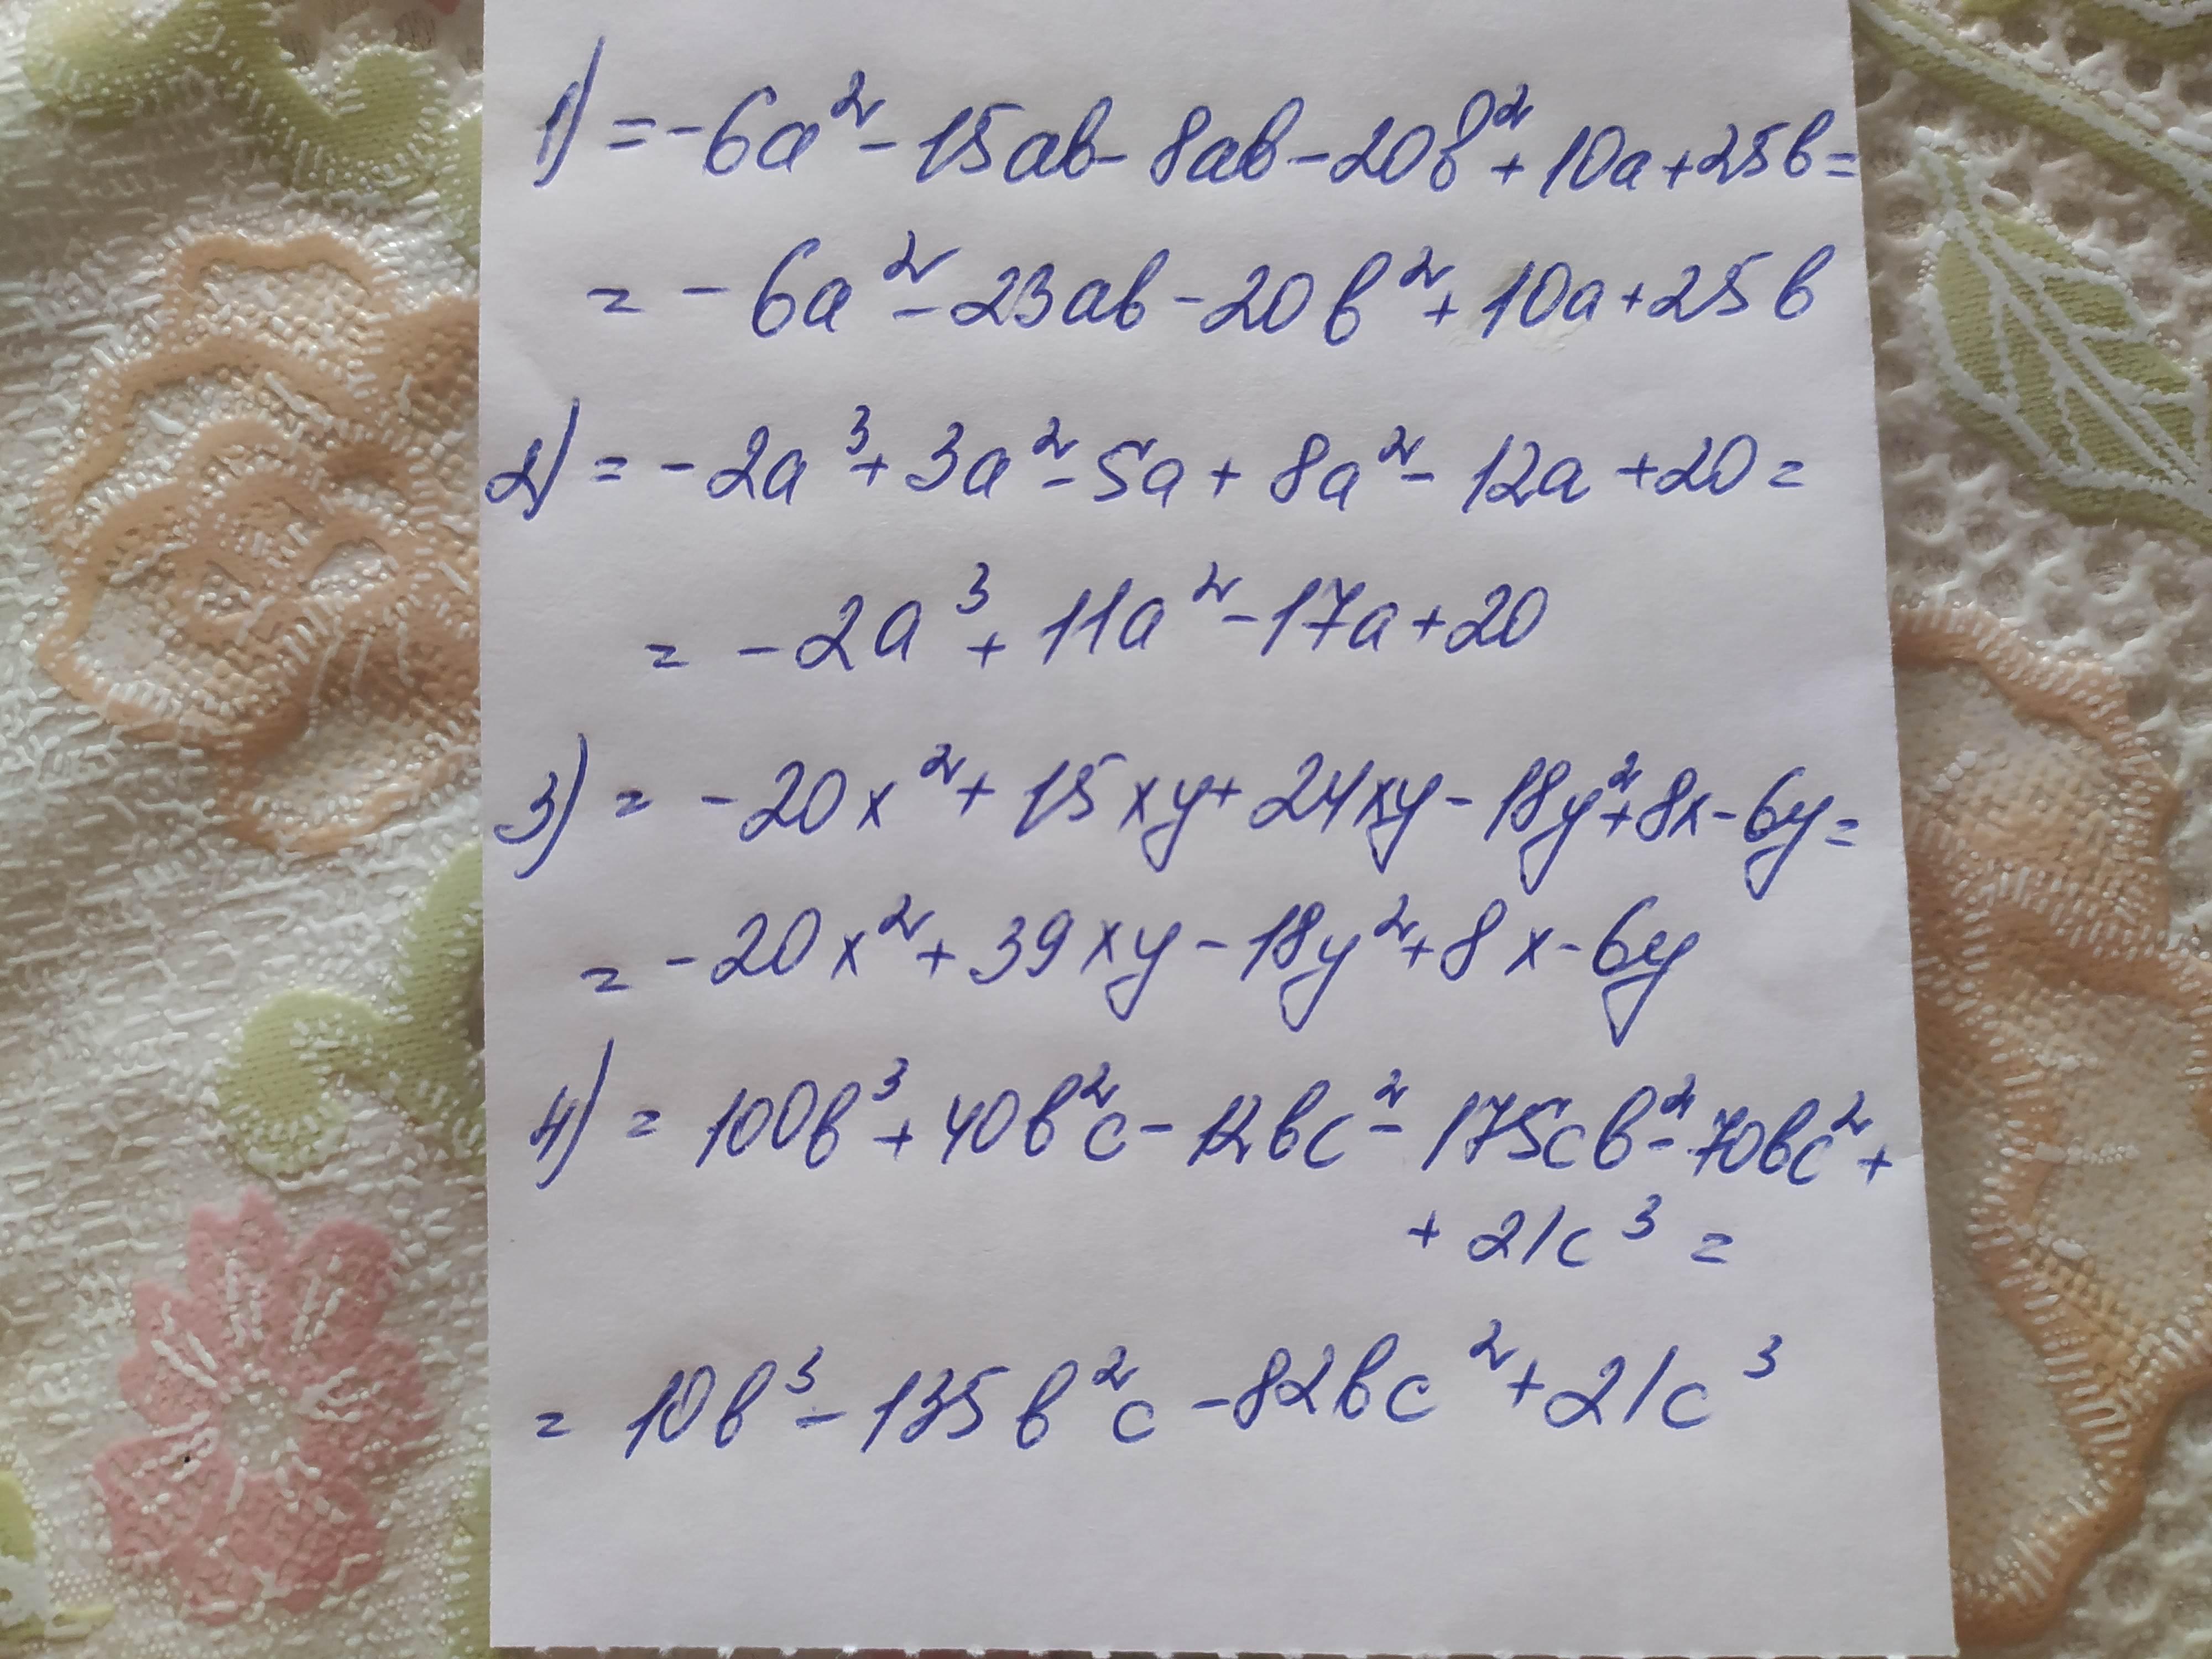 1) = -6a² - 15ab - 8ab - 20b² + 10a + 25b =
= -6a² - 23ab - 20b² + 10a + 25b
2) = -2a³ + 3a² - 5a + 8a² - 12a + 20 =
= -2a³ + 11a² - 17a + 20
3) = -20x² + 15xy + 24xy - 18y² + 8x - 6y =
= -20x² + 39xy - 18y² + 8x - 6y
4) = 100b³ + 40b²c - 12bc² - 175cb² - 70bc² +
+ 21c³ =
= 10b³ - 135b²c - 82bc² + 21c³